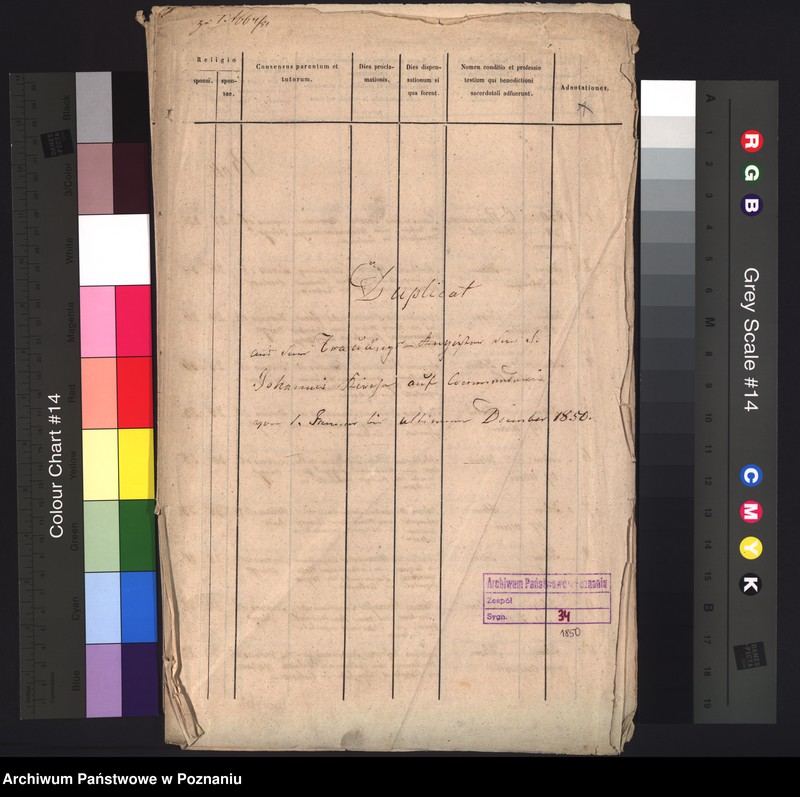 Religio
sponsi.
spon-
sae.
Consensus parentum et
tutorum.
Dies procla-
mationis.
Dies dispen-
sationum si
qua forent.
Nomen conditio et professio
testium qui benedictioni
sacerdotali adfuerunt.
Adnotationes.
Duplicat
aus dem Trauungs- der S.
Johannis Kirche auf Commenderie
vom 1. Januar bis ultimum December 1850.
Archiwum Państwowe w Poznaniu
Zespół
Sygn. 34
1850
Colour Chart #14
Black
3/Color
White
Magenta
Red
Yellow
Green
Cyan
Blue
Grey Scale #14
R
G
B
C
M
Y
K
A
1
2
3
4
5
6
M
8
9
10
11
12
13
14
15
B
17
18
19
Archiwum Państwowe w Poznaniu